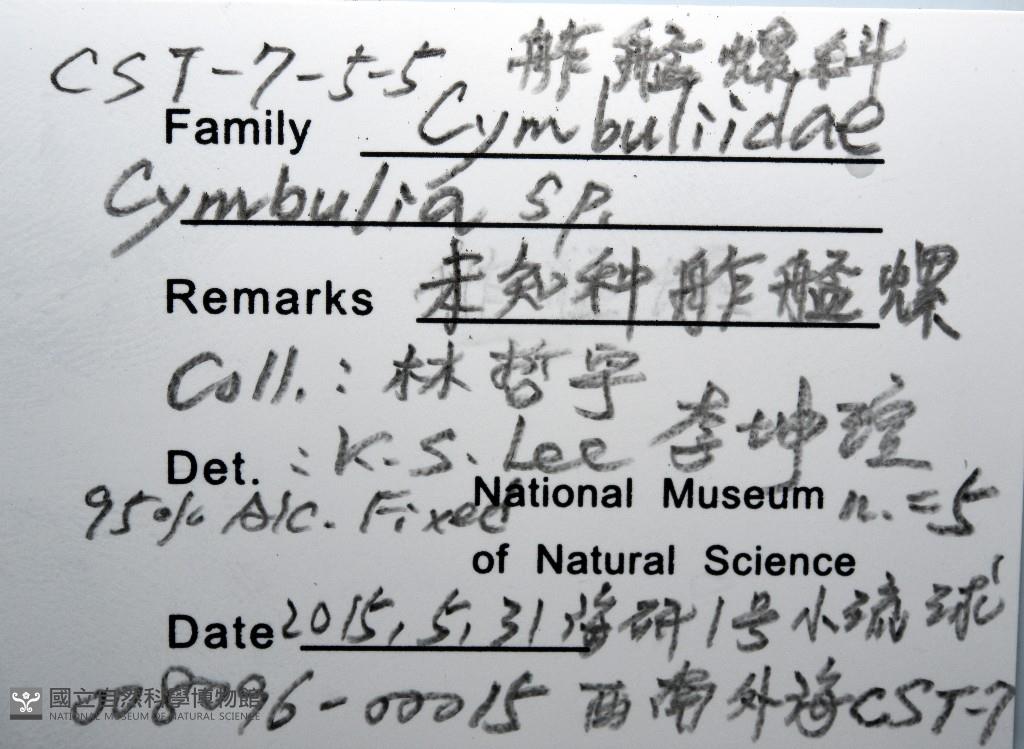 CST-7-5-5, 舴艋螺科
Family Cymbuliidae
Cymbulia sp.
Remarks 未知种舴艋螺
Coll.: 林哲宇
Det. : K.S. Lee 李坤瑄
95% Alc. Fixed National Museum n.=5
of Natural Science
Date 2015, 5, 31 海研1号小琉球
96-00015 西南外海CST-7
國立自然科學博物館
NATIONAL MUSEUM OF NATURAL SCIENCE